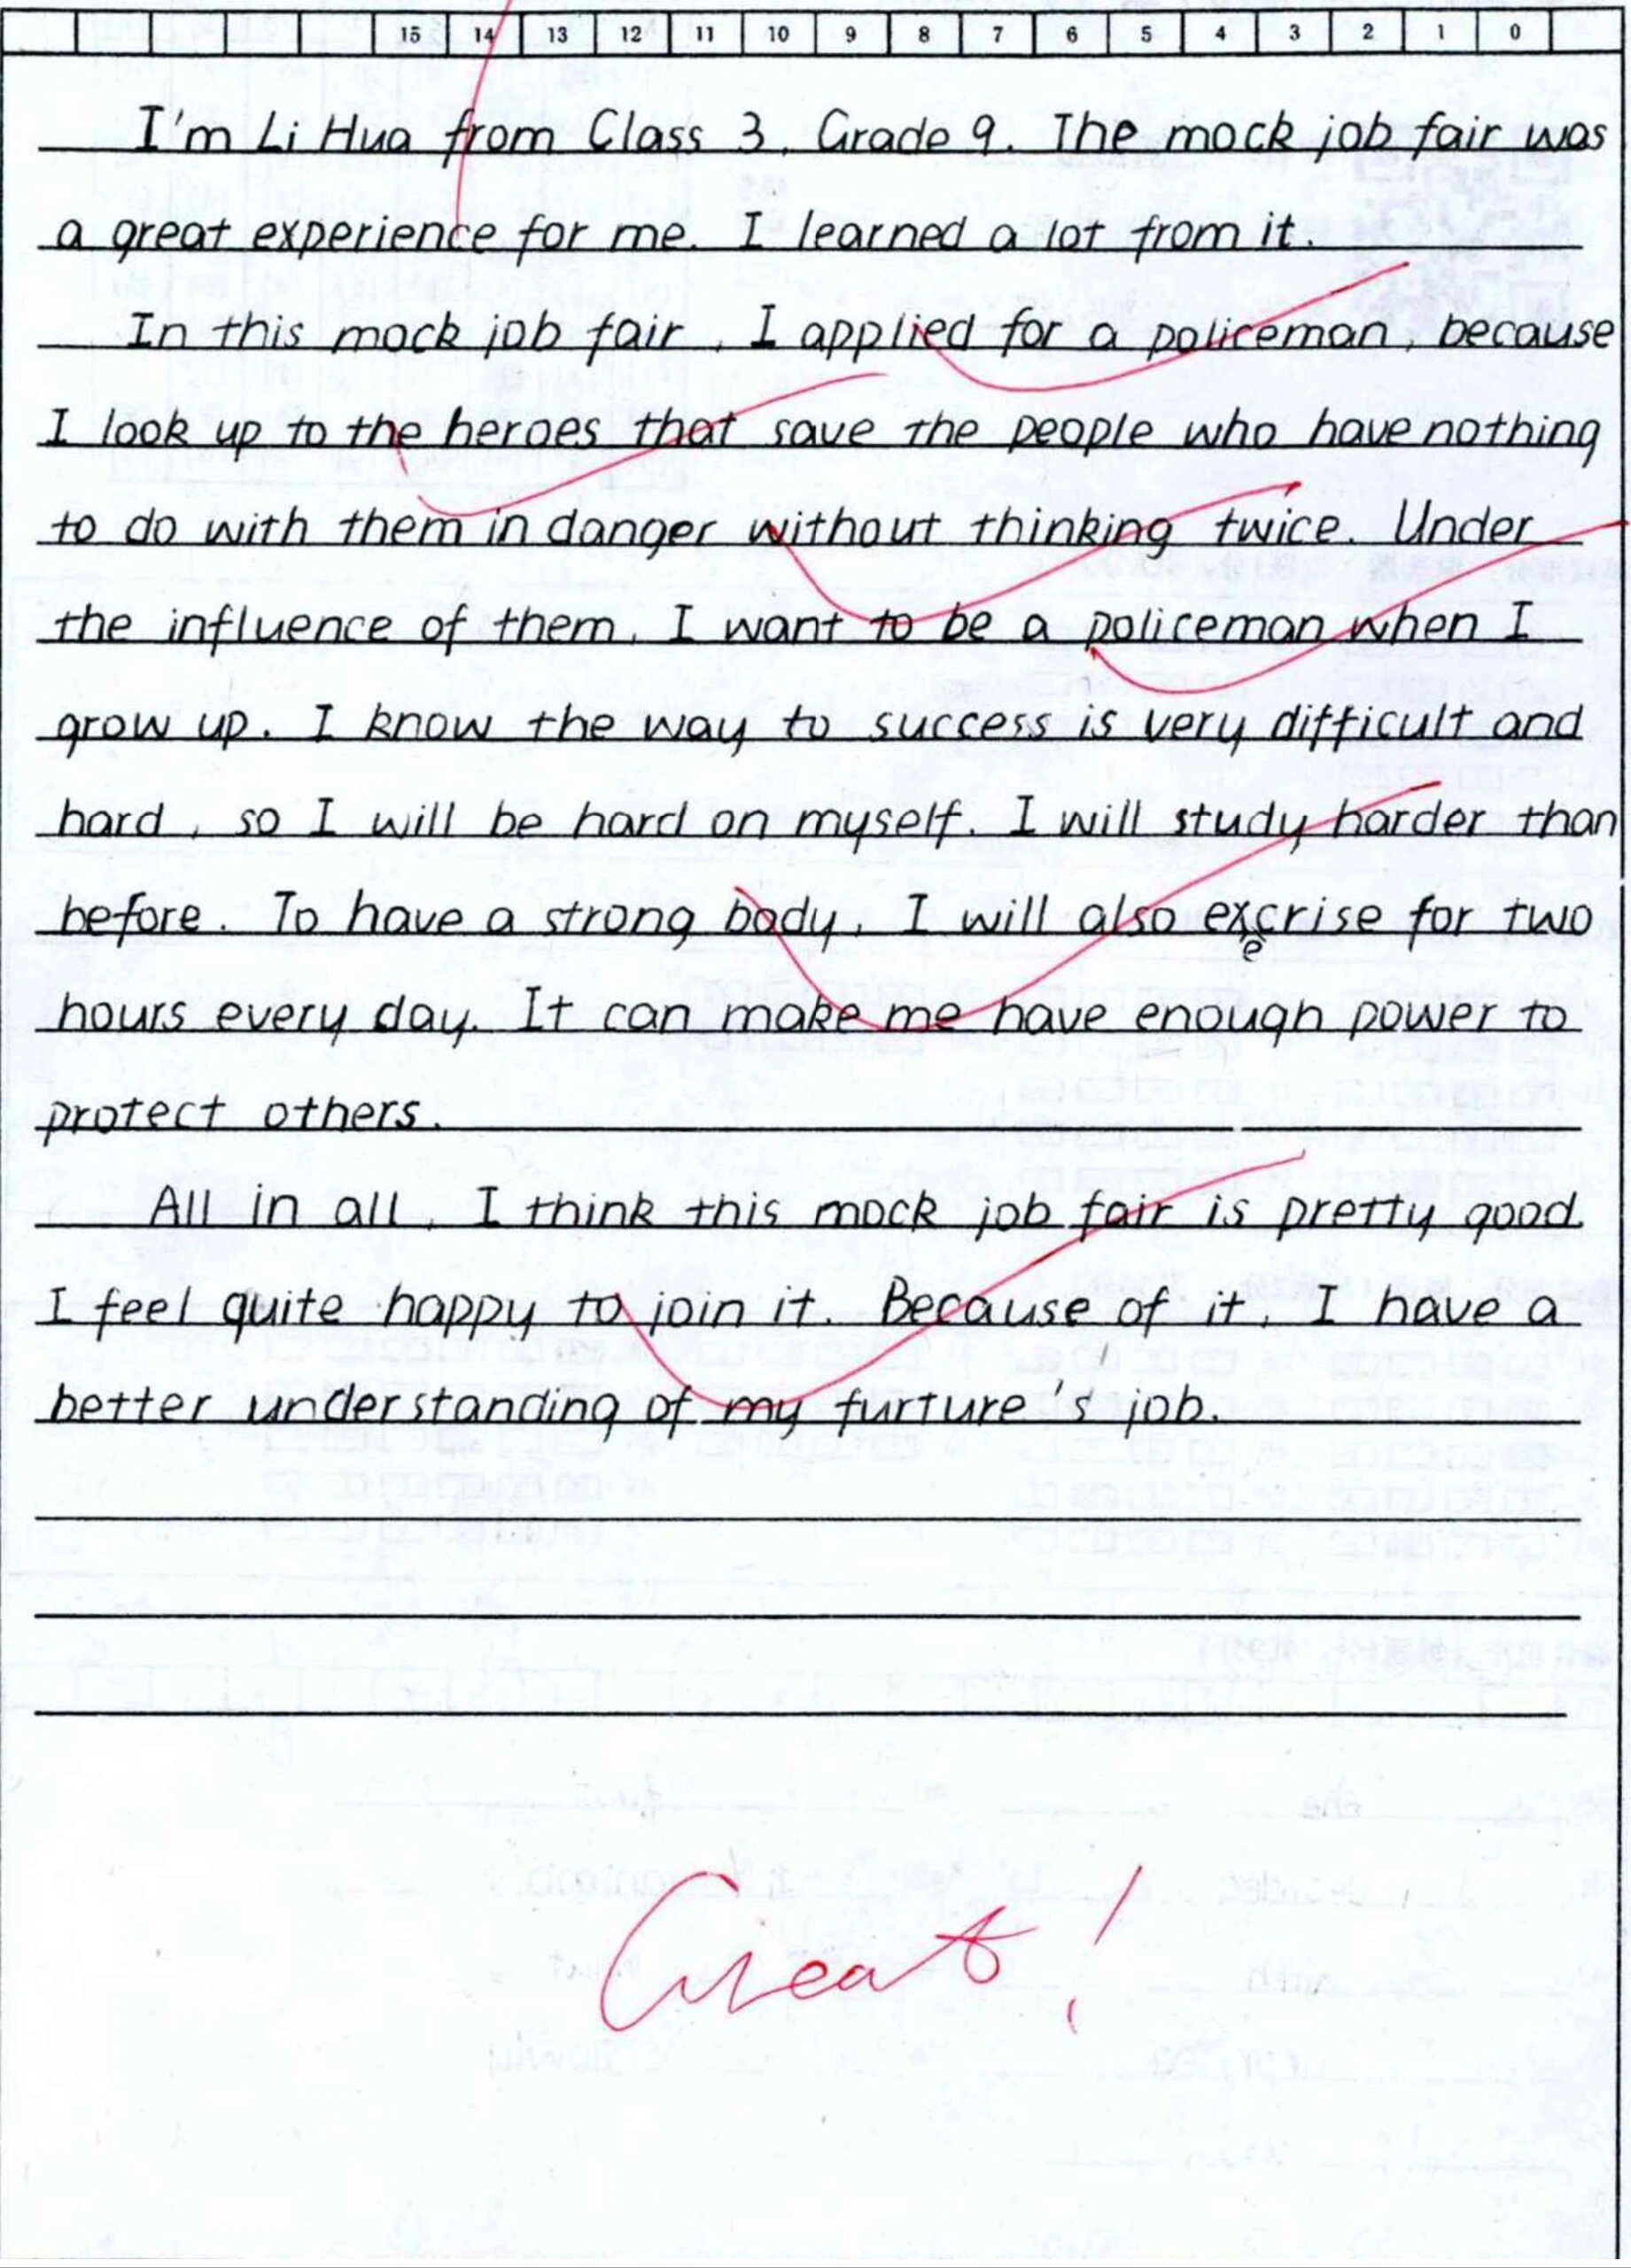 15 14 13 12 11 10 9 8 7 6 5 4 3 2 1 0
I'm Li Hua from Class 3, Grade 9. The mock job fair was
a great experience for me. I learned a lot from it.
In this mock job fair, I applied for a policeman, because
I look up to the heroes that save the people who have nothing
to do with them in danger without thinking twice. Under
the influence of them, I want to be a policeman when I
grow up. I know the way to success is very difficult and
hard, so I will be hard on myself. I will study harder than
before. To have a strong body, I will also execrise for two
hours every day. It can make me have enough power to
protect others.
All in all, I think this mock job fair is pretty good.
I feel quite happy to join it. Because of it, I have a
better understanding of my furture's job.
Great!